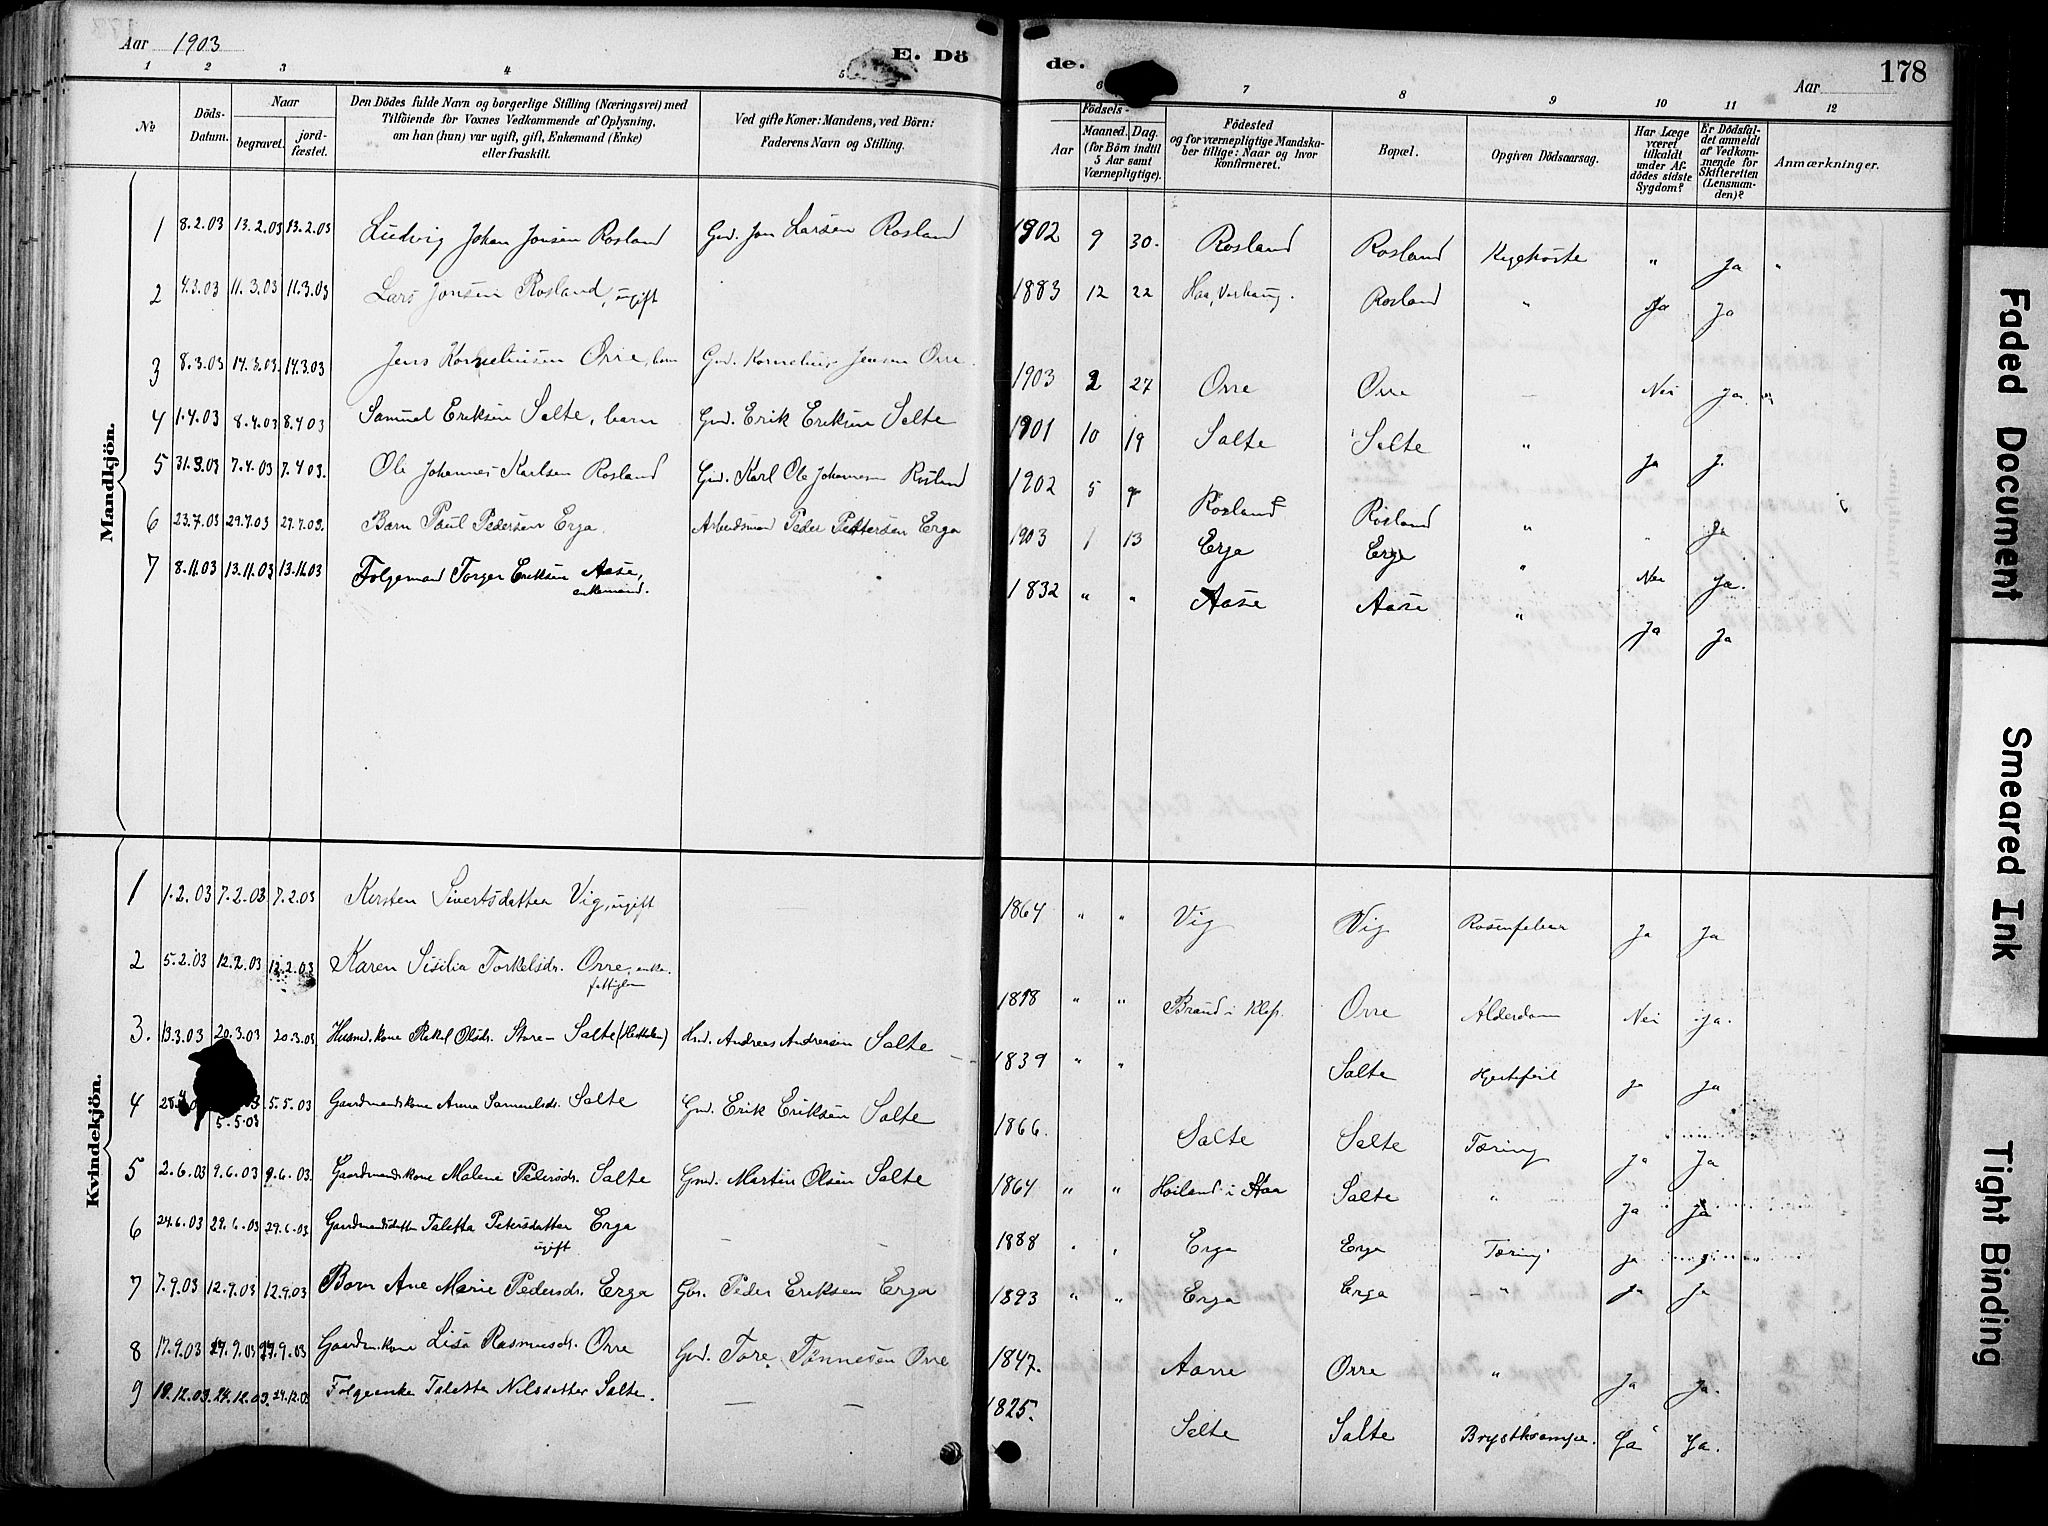 Aar 1903
E. Dö
de.
Aar
178
1 2 3 4 5 6 7 8 9 10 11 12
№
Döds-Datum.
Naar begravet. jordfæstet.
Den Dödes fulde Navn og borgerlige Stilling (Næringsvei) med
Tilföiende for Voxnes Vedkommende af Oplysning,
om han (hun) var ugift, gift, Enkemand (Enke)
eller fraskilt.
Ved gifte Koner: Mandens, ved Börn:
Faderens Navn og Stilling.
Födsels-
Aar Maaned. Dag.
(for Börn indtil
5 Aar samt
Værnepligtige).
Födested
og for værnepligtige Mandska-
ber tillige: Naar og hvor
konfirmeret.
Bopæl.
Opgiven Dödsaarsag.
Har Læge
været
tilkaldt
under Af-
dödes sidste
Sygdom?
Er Dödsfal-
det anmeldt
af Vedkom-
mende for
Skifteretten
(Lensman-
den)?
Anmærkninger.
Mandkjön.
1 8.2.03 13.2.03 13.2.03 Ludvig Johan Jonsen Rosland Gmd. Jon Larsen Rosland 1902 9 30. Rosland Rosland Kighoste " Ja "
2 4.3.03 11.3.03 11.3.03 Lars Jonsen Rosland, ugift 1883 12 22 Haa, Varhaug. Rosland " Ja Ja
3 8.3.03 14.3.03 14.3.03 Jens Korneliusen Orre, barn Gmd. Kornelius Jensen Orre. 1903 2 27 Orre Orre — Nei Ja
4 1.4.03 8.4.03 8.4 03 Samuel Eriksen Salte, barn Gmd. Erik Eriksen Salte 1901 10 19 Salte Salte " Ja J.
5 31.3.03 7.4.03 7.4 03. Ole Johannes Karlsen Rosland Gmd. Karl Ole Johannesen Rosland 1902 5 Rosland Rosland " " Ja
6 23.7.03 29.7.03 29.7.03. Barn Paul Pedersen Erga. Arbeidsmand Peder Pettersen Erga 1903 1 13 Erga Erga " Nei Ja.
7 8.11.03 13.11.03 13.11.03 Folgemand Torger Eriksen Aase, enkemand. 1832 " " Aase Aase " Ja Ja
Kvindekjön.
1 1.2.03 7.2.03 7.2.03 Kirsten Sivertsdatter Vig, ugift 1864 " " Vig Vig Rosenfeber Ja Ja
2 5.2.03 12.2.03 12.2.03 Karen Sisilia Torkelsdr. Orre, enke. fattiglem 1818 " " Brand i Klep. Orre Alderdom Nei Ja.
3. 13.3.03 20.3.03 20.3.03 Husmd.kone Rakel Olsdr. Store-Salte Hmd. Andreas Andreasen Salte 1839 " " Salte Hjertefeil Ja Ja
4 5.5.03 5.5.03 Gaardmandskone Anna Samuelsdr. Salte Gmd. Erik Eriksen Salte 1866. Salte Salte Tæring Ja Ja
5 2.6.03 9.6.03 9.6.03. Gaardmandskone Malene Pedersdr. Salte Gmd. Martin Olsen Salte 1864 " " Høiland i Haa Salte " Ja Ja
6 24.6.03 29.6.03 29.6.03 Gaardmandsdatter Taletta Petersdatter Erga ugift — — 1888 " " Erga Erga Tæring Ja Ja
7 7.9.03 12.9.03 12.9.03 Barn Ane Marie Pedersdr. Erga Gbr. Peder Eriksen Erga 1893 " " Erga Erga " Ja Ja
8 17.9.03 24.9.03 24.9.03 Gaardm.kone Lisa Rasmusdr. Orre Gmd. Tore Tönnesen Orre 1847. Aarre Orre " Ja Ja.
9 18.12.03. 24.12.03. 24.12.03 Folgeenke Taletta Nilsdatter Salte. — — 1825. Salte Salte Brystkrampe. Ja Ja.
Faded Document
Smeared Ink
Tight Binding